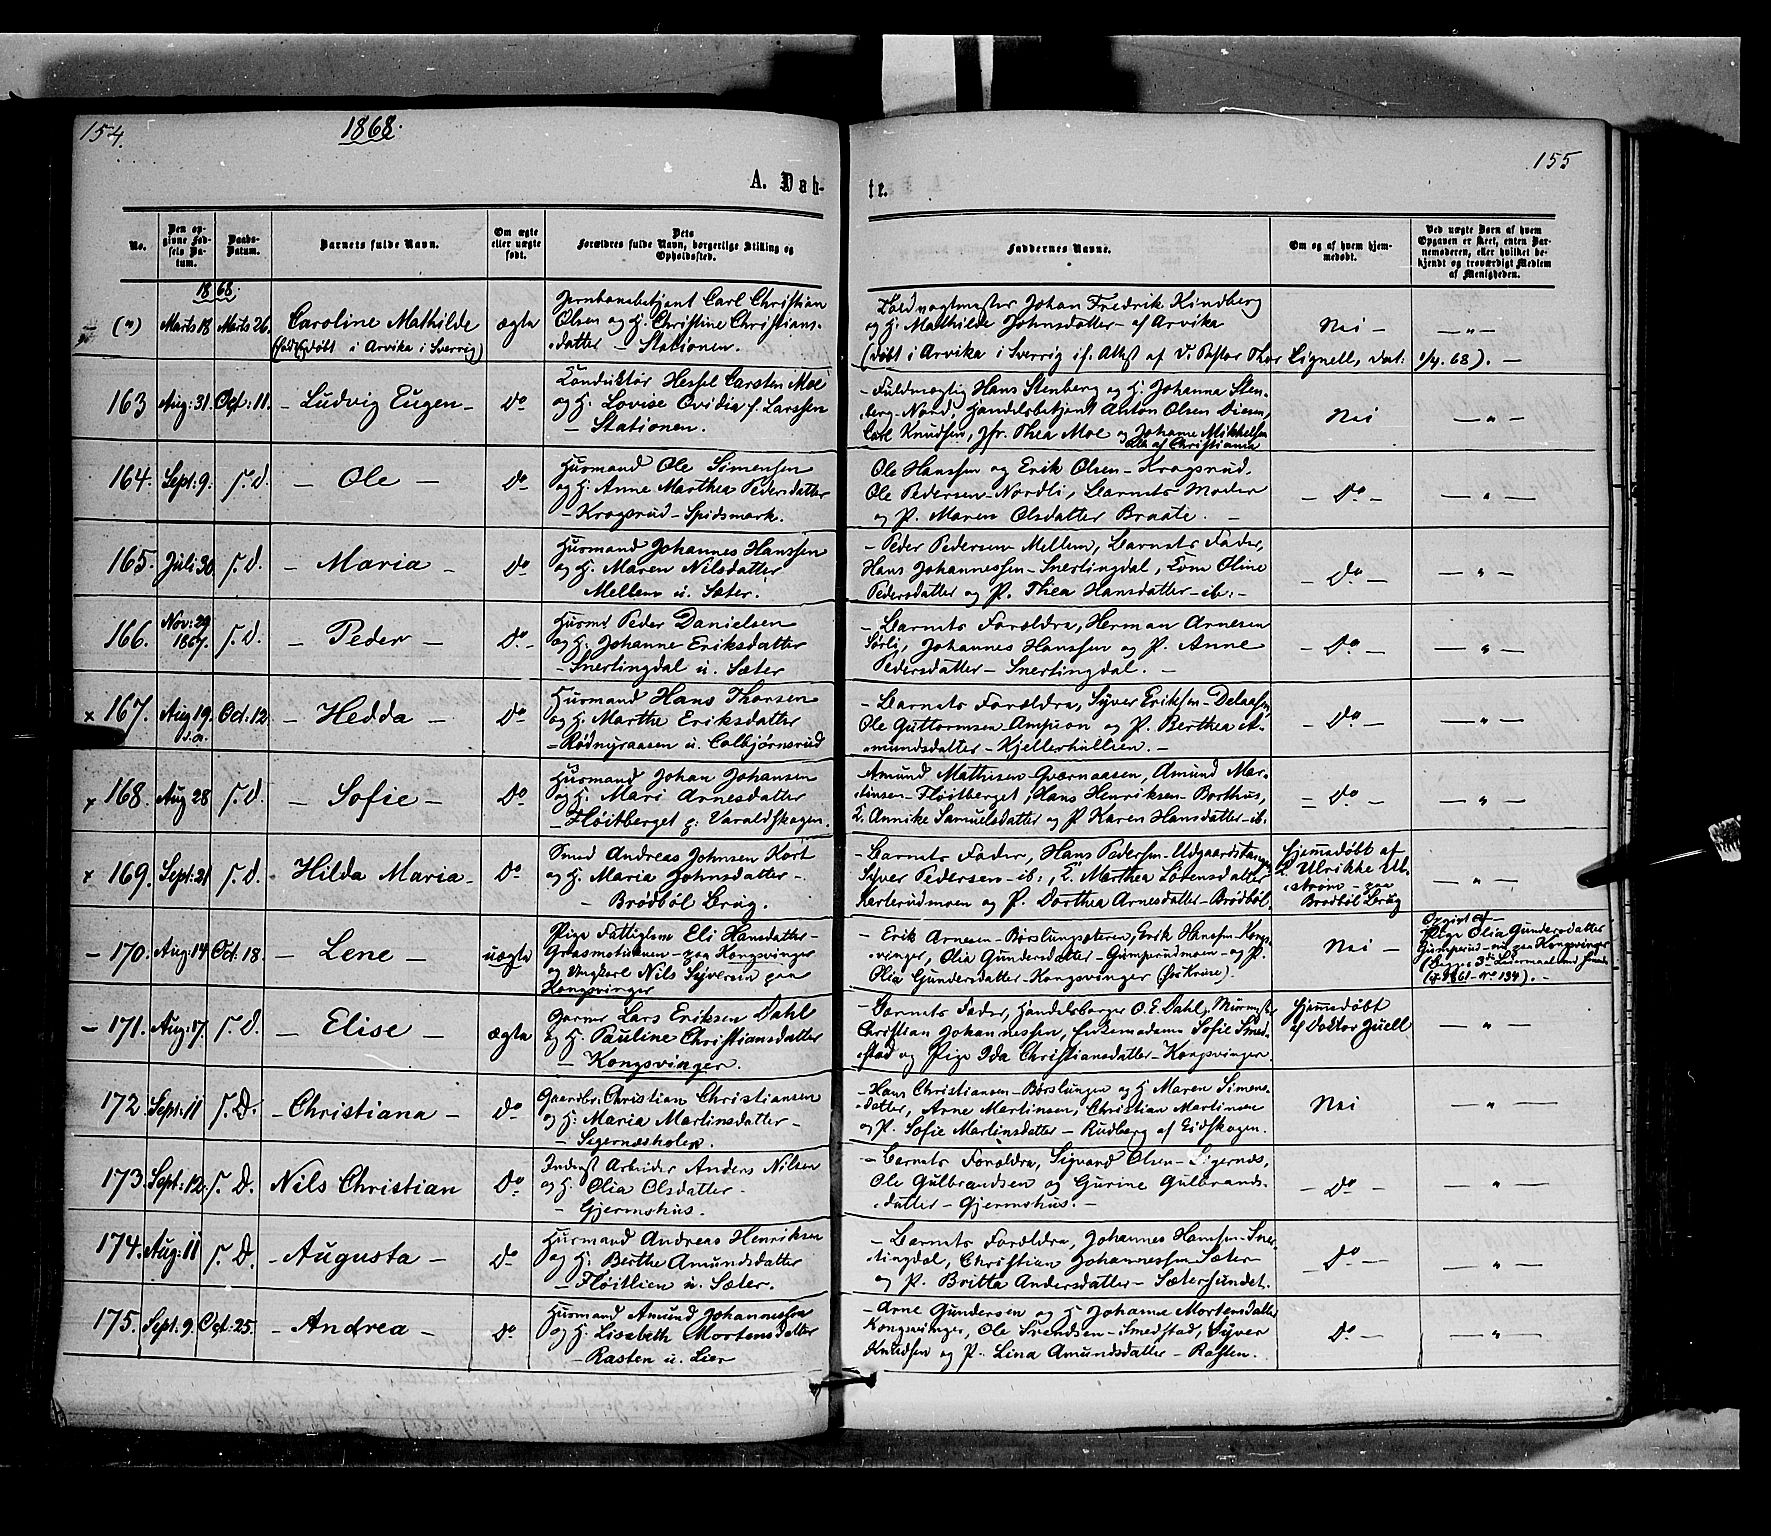 154.
1868.
155
A. Daab-
te.
No.
Den op-
givne Fød-
sels Da-
tum.
Daabs-
Datum.
Barnets fulde Navn.
Om ægte
eller uægte
født.
Dets
Forældres fulde Navn, borgerlige Stilling og
Opholdssted.
Faddernes Navne.
Om og af hvem hjem-
medøbt.
Ved uægte Børn af hvem
Opgaven er skeet, enten Bar-
nemoderen, eller hvilket be-
kjendt og troværdigt Medlem
af Menigheden.
1868.
(") Marts 18 Marts 26. Caroline Mathilde ægte
(født og døbt i Arvika i Sverrig)
Jernbanebetjent Carl Christian
Olsen og H. Christine Christians-
datter - Stationen.
Toldvagtmester Johan Fredrik Kindberg
og H. Mathilde Johnsdatter af Arvika
(døbt i Arvika i Sverrig if. Attest af V. Pastor Thor Lignell, dat: 1/4.68). -
Nei - - " -
163 Aug: 31. Oct: 11. - Ludvig Eugen - Do
Konduktør Hesfel Carsten Moe
og H. Lovise Ovidia f. Larssen
- Stationen.
- Fuldmægtig Hans Stenberg og H. Johanna Sten-
berg - Nord, Handelsbetjent Anton Olsen Diesen,
Carl Knudsen, Jfr. Thea Moe og Johanne Mikkelsen
alle af Christiania
Nei - " -
164. Sept: 9. s. D. - Ole - Do
Husmand Ole Simensen
og H. Anne Marthea Pedersdatter
- Kragsrud - Spidsmark.
Ole Hanssen og Erik Olsen - Kragsrud,
Ole Pedersen - Nordli, Barnets Moder
og P. Maren Olsdatter Braate. -
- Do - - " -
165. Juli 30 s. D. - Maria - Do
Husmand Johannes Hanssen
og H. Maren Nilsdatter
Mellem u. Sæter.
- Peder Pedersen Mellem, Barnets Fader,
Hans Johannessen - Snerlingdal, Kone Oline
Pedersdatter og P. Thea Hansdatter - ib: -
- Do - - " -
166. Nov: 29
1867. s. D. - Peder - Do -
Husmd Peder Danielsen
og H. Johanne Eriksdatter
- Snerlingdal u. Sæter
- Barnets Forældre, Herman Arnesen
Sørli, Johannes Hanssen og P. Anne
Pedersdatter - Snerlingdal. -
- Do - - " -
x 167. Aug 19. Oct: 12 - Hedda - Do
d.a.
Husmand Hans Thorsen
og H. Marthe Eriksdatter
- Rødnyraasen u. Colbjørnsrud
- Barnets Forældre, Syver Eriksen -
Ole Guttormsen Ampion og P. Berthea A-
mundsdatter - Kjellerhullien. -
- Do - - " -
x 168. Aug 28 s. D. - Sofie - Do
Husmand Johan Johansen
og H. Mari Arnesdatter
- Fløitberget p: Varaldskogen.
- Amund Mathisen Qværnaasen, Amund Mar-
tinsen - Fløitberget, Hans Henriksen - Borthus,
K. Annike Samuelsdatter og P Karen Hansdatter - ib.
- Do - - " -
x 169. Sept: 21 s. D. - Hilda Maria - Do
Smed Andreas Johnsen Kort
og H. Maria Johnsdatter -
- Brødbøl Brug.
- Barnets Fader, Hans Pedersen - Udgaardstange
Syver Pedersen - ib:, K. Marthea Lorensdatter
Karterudmoen og P. Dorthea Arnesdatter - Brødbøl.
Hjemmedøbt af
K Ulrikke Ul-
strøm - paa
Brødbøl Brug
- " -
- 170. Aug: 14 Oct. 18 - Lene - uægte
Pige Fattiglem Eli Hansdatter -
Græsmotunen - paa Kongsvinger
og Ungkarl Nils Syversen paa
Kongsvinger
- Erik Arnesen - Børslungsæteren, Erik Hansen - Kongs-
vinger, Olia Gundersdatter - Gumperudmoen - og P.
Olia Gundersdatter - Kongsvinger (hos Kruse).
Nei -
Opgivet af -
Pige Olia Gundersdatter
Gumperud - nu paa Kongsvinger
(Begges 3die Leiermaal
1861 - No 134). -
- 171. Aug: 17. s. D. - Elise - ægte
Garver Lars Eriksen Dahl
og H. Pauline Christiansdatter
- Kongsvinger.
- Barnets Fader, Handelsborger O. E. Dahl, Murmester
Christian Johannessen, Enkemadame Sofie Smed-
stad og Pige Ida Christiansdatter - Kongsvinger
Hjemmedøbt
af Doktor Juell
- " -
172. Sept: 11 s. D. - Christiana - Do
Gaardbr. Christian Christiansen
og H: Maria Martinsdatter -
- Sigernæsholen.
- Hans Christiansen - Børslungen og H Maren Simens-
datter, Arne Martinsen, Christian Martinsen
og P. Sofie Martinsdatter - Rudberg af Eidskogen.
Nei - " -
173. Sept: 12. s. D. Nils Christian Do
Inderst Arbeider Anders Nilsen
og H. Olia Olsdatter -
- Gjermshus.
- Barnets Forældre, Sigvard Olsen - Sigernæs,
Ole Gulbrandsen og Gurine Gulbrands-
datter - Gjermshus. -
- Do - - " -
174. Aug: 11 s. D. - Augusta - Do
Husmand Andreas Henriksen
og H: Berthe Amundsdatter
- Fløitlien u. Sæter.
- Barnets Forældre, Johannes Hanssen - Sner-
tingdal, Christian Johannessen - Sæter
og P. Britta Andersdatter - Sætersundet.
- Do - - " -
175. Sept: 9. Oct. 25. - Andrea - Do
Husmand Amund Johannessen
og H: Lisabeth Mortensdatter
- Rasten u. Lier
- Arne Gundersen og H Johanne Mortensdatter
Kongsvinger, Ole Svendsen - Smedstad, Syver
Knudsen og P. Lina Amundsdatter - Rasten.
Do - - " -